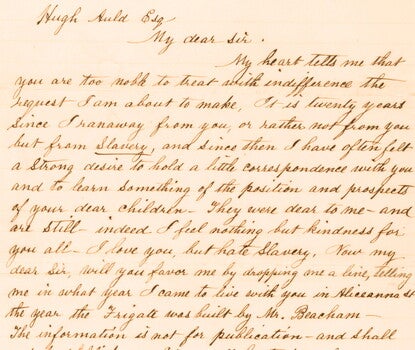 Hugh Auld Esq
My dear sir.
My heart tells me that
you are too noble to treat with indifference the
request I am about to make, It is twenty years
Since I ranaway from you, or rather not from you
but from Slavery, and since then I have often felt
a Strong desire to hold a little correspondence with you
and to learn something of the position and prospects
of your dear children— They were dear to me— and
are still— indeed I feel nothing but kindness for
you all— I love you, but hate Slavery, Now my
dear Sir, will you favor me by dropping me a line, telling
me in what year I came to live with you in Aliceanna st
the year the Frigate was built by Mr. Beacham—
The information is not for publication— and shall